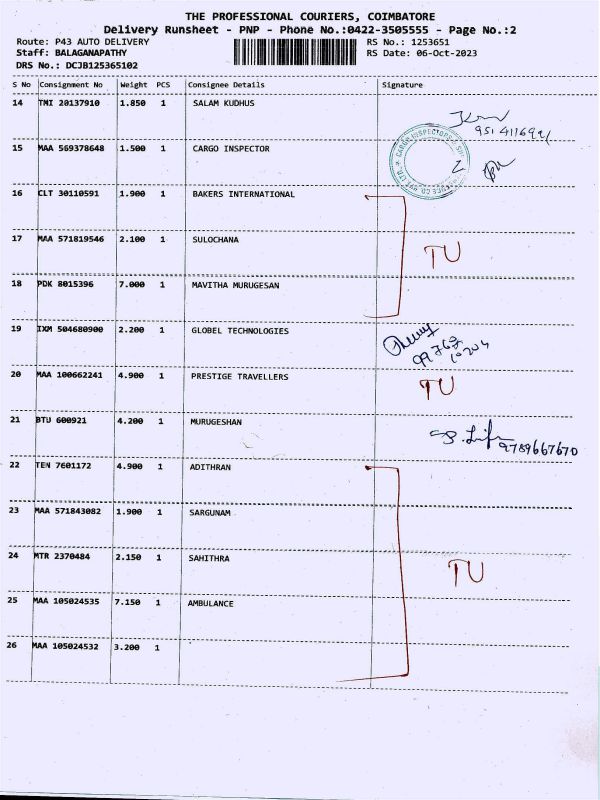 THE PROFESSIONAL COURIERS, COIMBATORE
Delivery Runsheet - PNP - Phone No.:0422-3505555 - Page No.:2
Route: P43 AUTO DELIVERY RS No.: 1253651
Staff: BALAGANAPATHY RS Date: 06-Oct-2023
DRS No.: DCJB125365102
S No Consignment No Weight PCS Consignee Details Signature
14 TMI 20137910 1.850 1 SALAM KUDHUS
951 411692
15 MAA 569378648 1.500 1 CARGO INSPECTOR
CARGO INSPECTORS
16 CLT 30110591 1.900 1 BAKERS INTERNATIONAL
17 MAA 571819546 2.100 1 SULOCHANA
TU
18 PDK 8015396 7.000 1 MAVITHA MURUGESAN
19 IXM 504680900 2.200 1 GLOBEL TECHNOLOGIES
20 MAA 100662241 4.900 1 PRESTIGE TRAVELLERS
TU
21 BTU 600921 4.200 1 MURUGESHAN
9789667670
22 TEN 7601172 4.900 1 ADITHRAN
23 MAA 571843082 1.900 1 SARGUNAM
24 MTR 2370484 2.150 1 SAHITHRA
TU
25 MAA 105024535 7.150 1 AMBULANCE
26 MAA 105024532 3.200 1